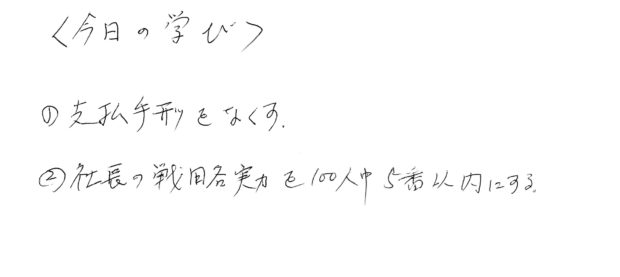 ＜今日の学び＞
① 支払手形をなくす.
② 社長の戦略実力を100人中5番以内にする.